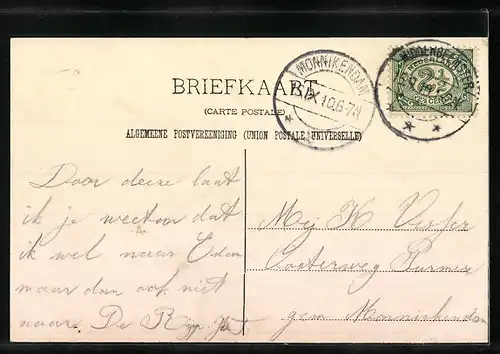 BRIEFKAART
(CARTE POSTALE)
ALGEMEENE POSTVEREENIGING (UNION POSTALE UNIVERSELLE)
MONNIKENDAM
IX 10.6-7N
MIDDENBEEMSTER
NEDERLAND
2½
CENT
Door deeze laat
ik je weeten dat
ik wel naar Edam
maar dan ook niet
naar De Rijp.
Mej K Visser
Oosterweg Purmer
gem Monnikendam